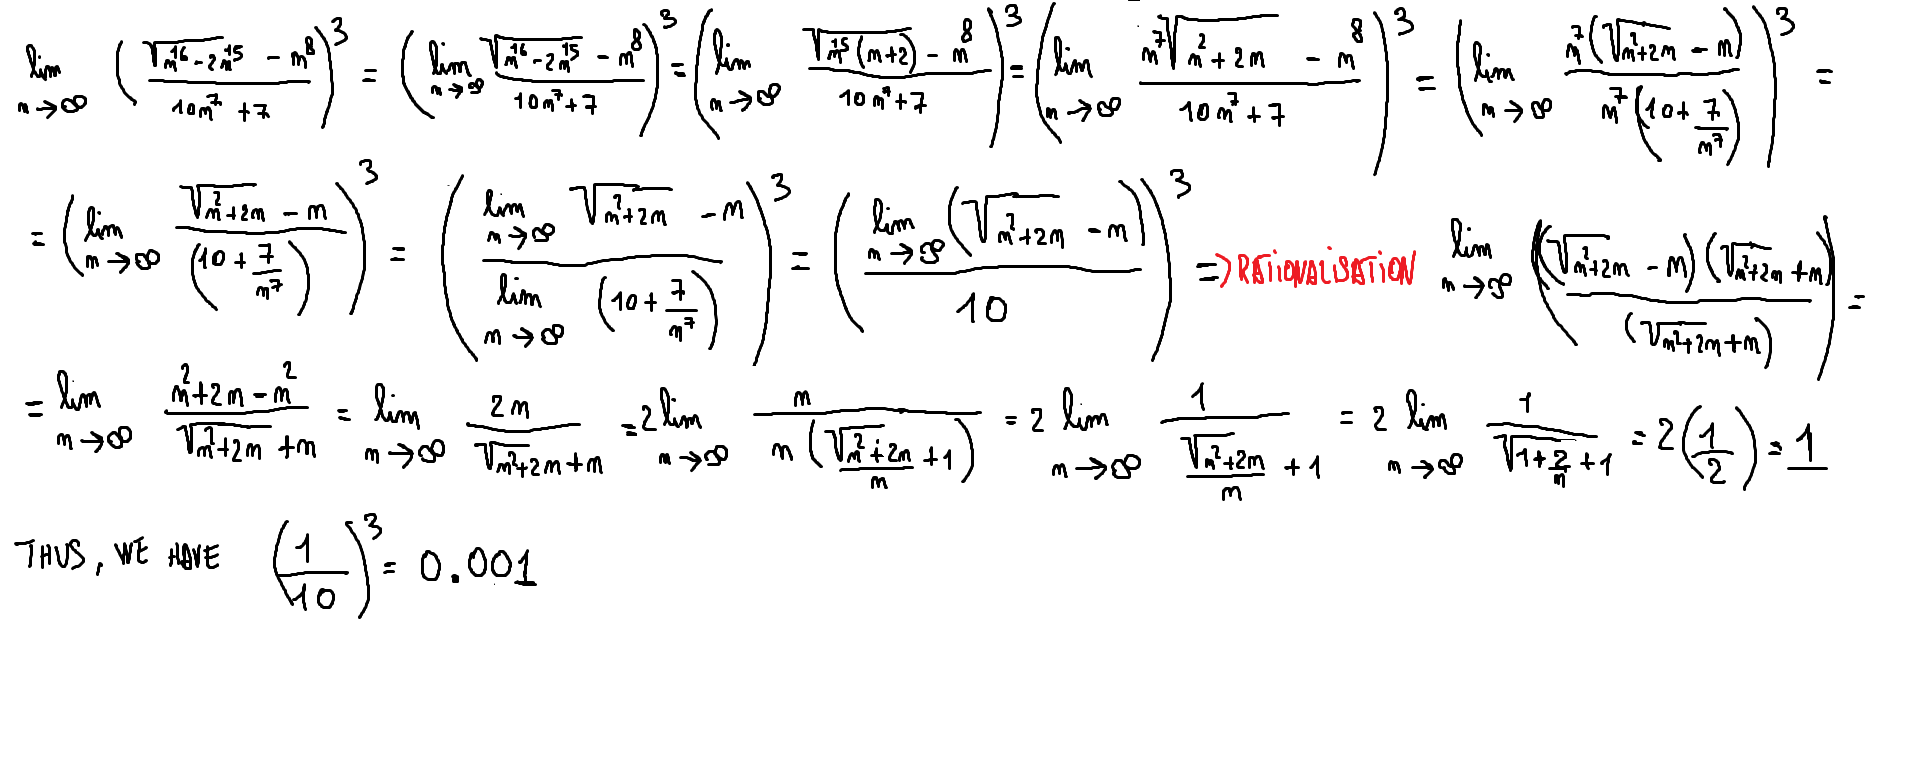 lim n→∞ ((√(n^16 - 2n^15) - n^8)/(10n^7 + 7))^3 = (lim n→∞ (√(n^16 - 2n^15) - n^8)/(10n^7 + 7))^3 = (lim n→∞ (√(n^15(n+2)) - n^8)/(10n^7 + 7))^3 = (lim n→∞ (n^7√(n^2 + 2n) - n^8)/(10n^7 + 7))^3 = (lim n→∞ (n^7(√(n^2+2n) - n))/(n^7(10 + 7/n^7)))^3 =
= (lim n→∞ (√(n^2+2n) - n)/(10 + 7/n^7))^3 = ((lim n→∞ √(n^2+2n) - n)/(lim n→∞ (10 + 7/n^7)))^3 = ((lim n→∞ (√(n^2+2n) - n))/10)^3 => RATIONALISATION lim n→∞ (((√(n^2+2n) - n)(√(n^2+2n) + n))/(√(n^2+2n) + n)) =
= lim n→∞ (n^2+2n - n^2)/(√(n^2+2n) + n) = lim n→∞ 2n/(√(n^2+2n) + n) = 2 lim n→∞ n/(n(√(n^2+2n)/n + 1)) = 2 lim n→∞ 1/(√(n^2+2n)/n + 1) = 2 lim n→∞ 1/(√(1+2/n) + 1) = 2(1/2) = 1
THUS, WE HAVE (1/10)^3 = 0.001